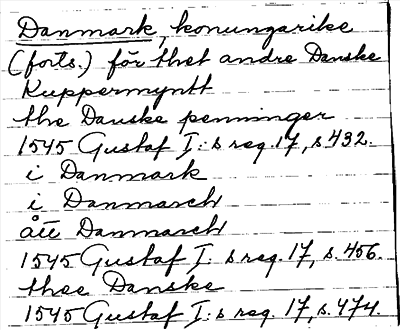 Danmark, konungarike
(forts.) för thet andre Danske
Kuppermyntt
the Danske penninger
1545 Gustaf I:s reg. 17, s. 432.
i Danmark
i Danmarch
ått Danmarch
1545 Gustaf I:s reg. 17, s. 456.
thee Danske
1545 Gustaf I:s reg. 17, s. 474.